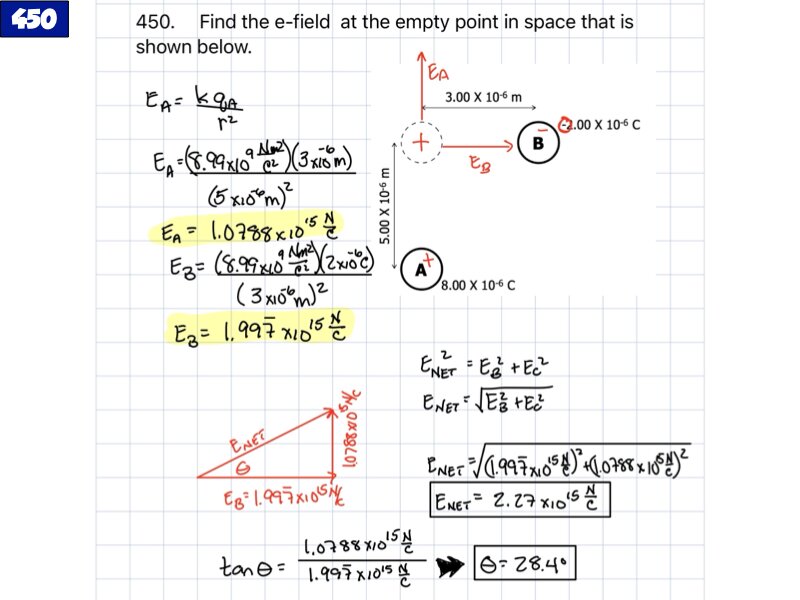 450
450. Find the e-field at the empty point in space that is
shown below.
E_A = k q_A / r²
E_A = (8.99x10⁹ Nm²/C²)(3x10⁻⁶m) / (5x10⁻⁶m)²
E_A = 1.0788x10¹⁵ N/C
E_B = (8.99x10⁹ Nm²/C²)(2x10⁻⁶C) / (3x10⁻⁶m)²
E_B = 1.997̅ x10¹⁵ N/C
E_A
3.00 X 10⁻⁶ m
+
E_B
− B
-2.00 X 10⁻⁶ C
5.00 X 10⁻⁶ m
A +
8.00 X 10⁻⁶ C
E_NET² = E_B² + E_C²
E_NET = √(E_B² + E_C²)
E_NET = √((1.997̅x10¹⁵ N/C)² + (1.0788x10¹⁵ N/C)²)
E_NET = 2.27x10¹⁵ N/C
E_NET
θ
1.0788x10¹⁵ N/C
E_B = 1.997̅x10¹⁵ N/C
tan θ = 1.0788x10¹⁵ N/C / 1.997̅x10¹⁵ N/C
θ = 28.4°